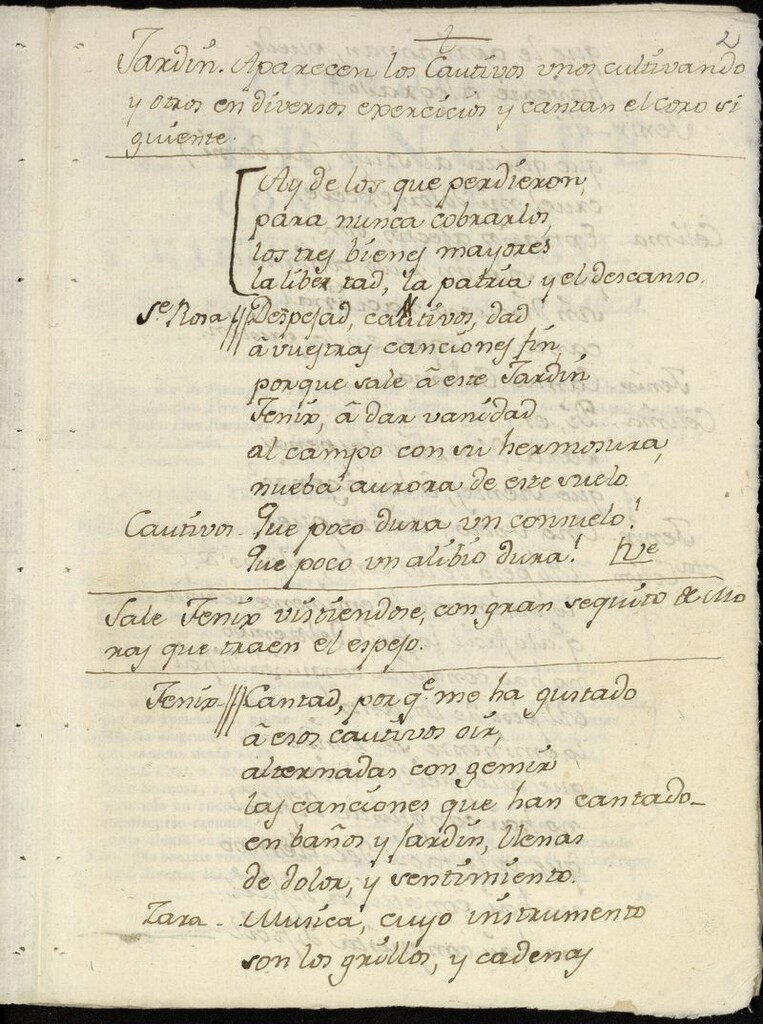 2
Jardin. Aparecen los Cautivos unos cultivando
y otros en diversos exercicios y cantan el coro si
guiente.
Ay de los que perdieron,
para nunca cobrarlos,
los tres bienes mayores
la liber tad, la patria y el descanso.
Sᵉ. Rosa Despejad, cautivos, dad
â vuestras canciones fin,
porque sale â este Jardin
Fenix, â dar vanidad
al campo con su hermosura,
nueba aurora de este suelo.
Cautivos. Que poco dura un consuelo!
Que poco un alibio dura! Vᵉ
Sale Fenix vistiendose, con gran sequito de Mo
ras que traen el espejo.
Fenix Cantad, por qᵉ. me ha gustado
â esos cautivos oir,
alternadas con gemir
las canciones que han cantado
en baños y Jardin, llenas
de dolor, y sentimiento.
Zara. Musica, cuyo instrumento
son los grillos, y cadenas